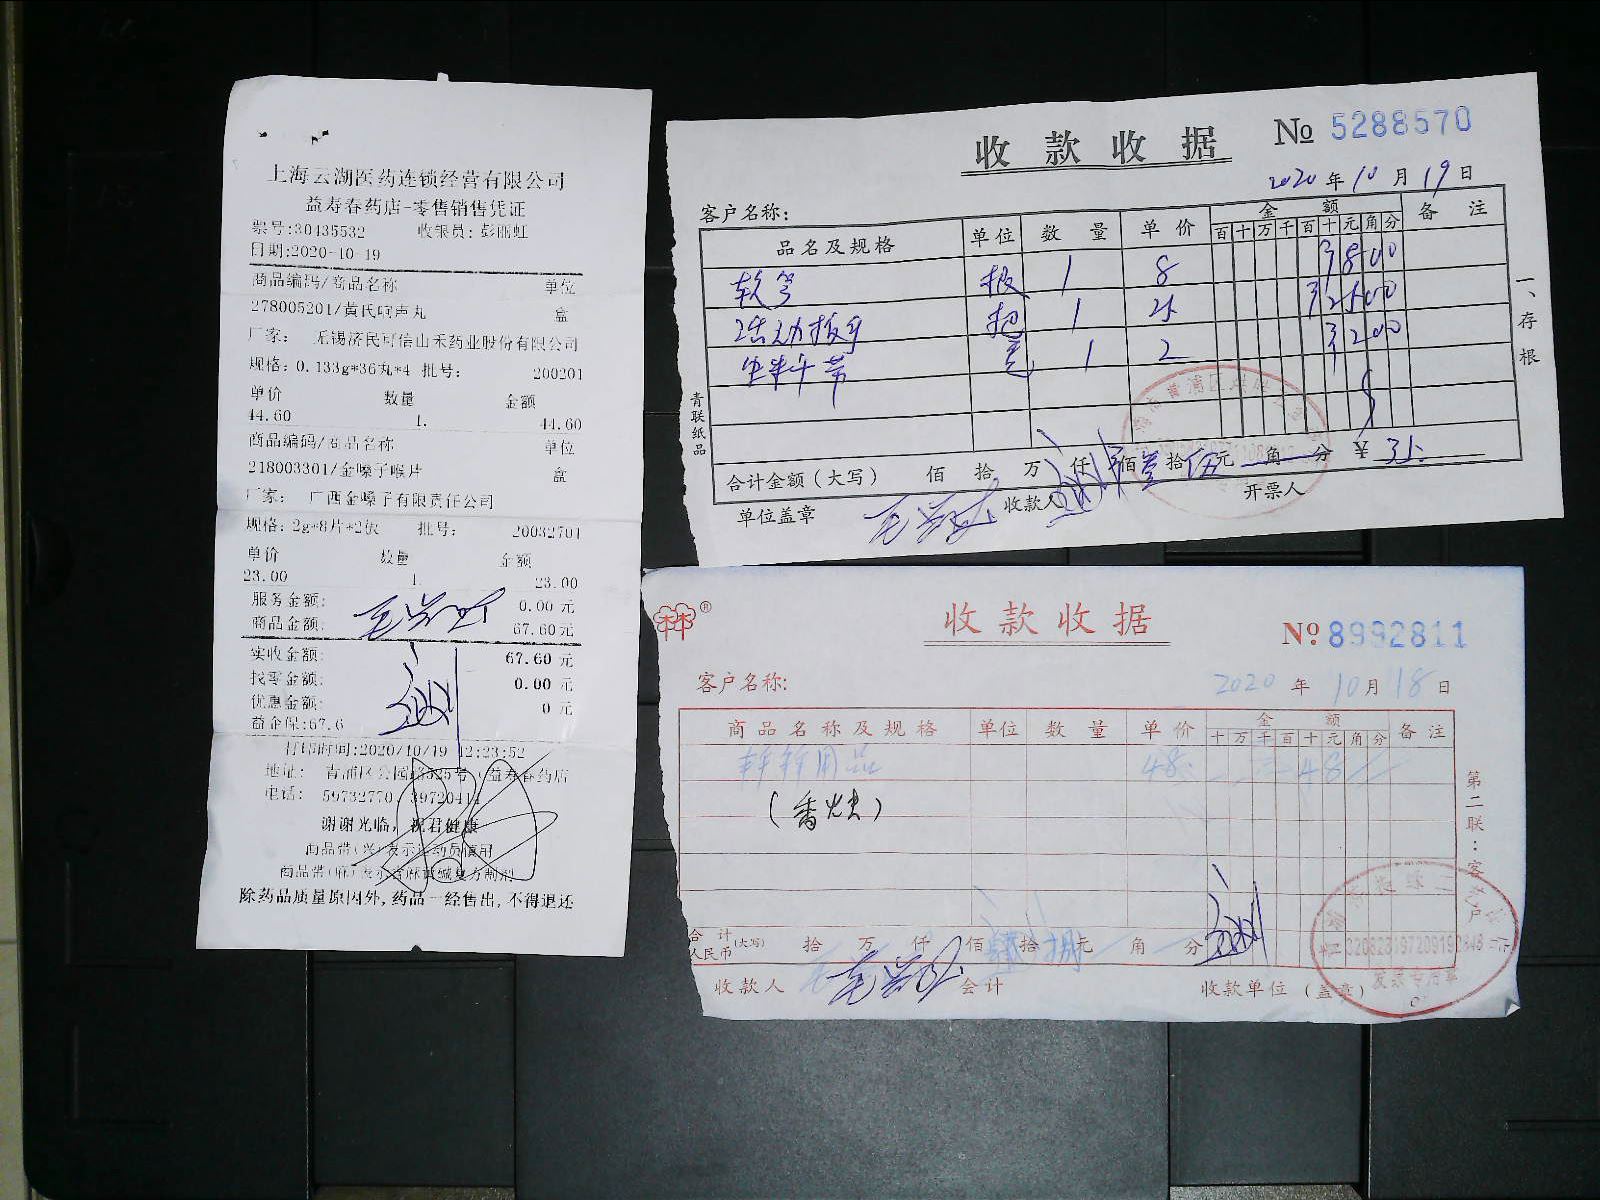 上海云湖医药连锁经营有限公司
益寿春药店-零售销售凭证
票号:30435532 收银员:彭丽虹
日期:2020-10-19
商品编码/商品名称 单位
278005201/黄氏响声丸 盒
厂家: 无锡济民可信山禾药业股份有限公司
规格:0.133g*36丸*4 批号: 200201
单价 数量 金额
44.60 1. 44.60
商品编码/商品名称 单位
218003301/金嗓子喉片 盒
厂家: 广西金嗓子有限责任公司
规格:2g*8片*2板 批号: 20032701
单价 数量 金额
23.00 1. 23.00
服务金额: 0.00 元
商品金额: 67.60元
实收金额: 67.60 元
找零金额: 0.00 元
优惠金额: 0 元
益企保:67.6
打印时间:2020/10/19 12:23:52
地址: 青浦区公园路525号 (益寿春药店
电话: 59732770、39720414
谢谢光临, 祝君健康
商品带(兴)表示运动员慎用
商品带(麻)表示含麻黄碱复方制剂
除药品质量原因外,药品一经售出,不得退还
收款收据 № 5288570
2020年10月19日
客户名称:
品名及规格 单位 数量 单价 金额 备注
百十万千百十元角分
软管 根 1 8 800
活动扳手 把 1 25 2500
生料带 卷 1 2 200
合计金额(大写) 佰 拾 万 仟 佰叁拾伍元 角 分 ¥ 35.
单位盖章 收款人 开票人
青联纸品
一、存根
收款收据 №8992811
客户名称: 2020年10月18日
商品名称及规格 单位 数量 单价 金额 备注
十万千百十元角分
用品 48. 48
(香火)
合计人民币(大写) 拾 万 仟 佰肆拾捌元 角 分
收款人 会计 收款单位(盖章)
第二联:客户
发票专用章